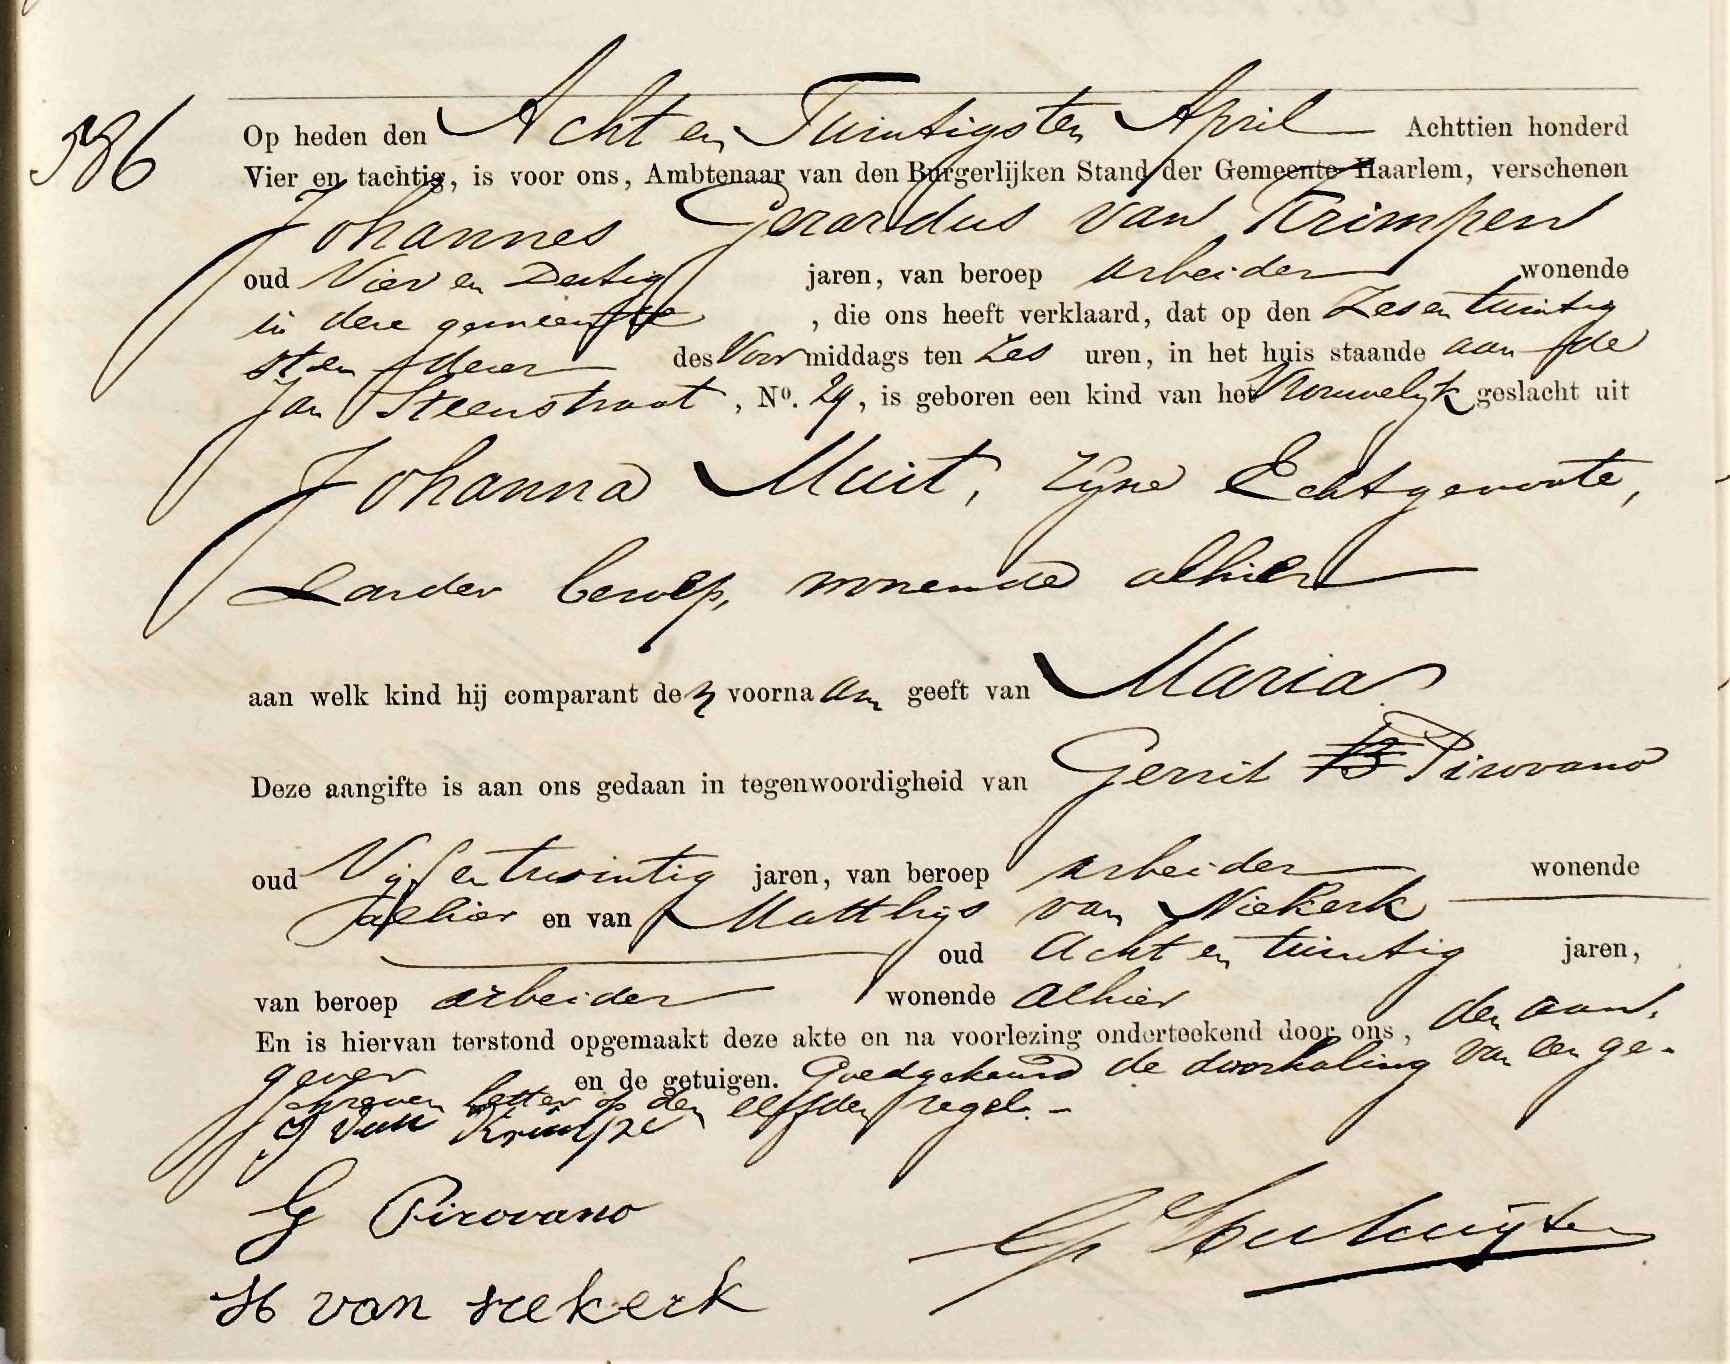 386
Op heden den Acht en Twintigsten April Achttien honderd
Vier en tachtig, is voor ons, Ambtenaar van den Burgerlijken Stand der Gemeente Haarlem, verschenen
Johannes Gerardus van Krimpen
oud Vier en Dertig jaren, van beroep arbeider wonende
in deze gemeente, die ons heeft verklaard, dat op den Zes en twintig
sten dezer des Voormiddags ten Zes uren, in het huis staande aan de
Jan Steenstraat, No. 29, is geboren een kind van het Vrouwelijk geslacht uit
Johanna Muit, zijne Echtgenoote,
zonder beroep, wonende alhier
aan welk kind hij comparant den voornaam geeft van Maria
Deze aangifte is aan ons gedaan in tegenwoordigheid van Gerrit B Pirovano
oud Vijf en twintig jaren, van beroep arbeider wonende
alhier en van Matthijs van Niekerk
oud Acht en twintig jaren,
van beroep arbeider wonende alhier
En is hiervan terstond opgemaakt deze akte en na voorlezing onderteekend door ons, den aan-
gever en de getuigen. Goedgekeurd de doorhaling van een ge-
schreven letter op den elfden regel. -
J van Krimpe
G Pirovano
M van niekerk